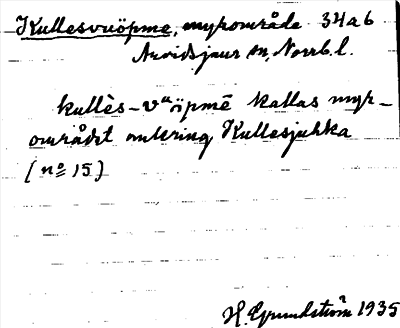 Kullesvuöpme, myrområde 34a6
Arvidsjaur sn, Norrb. l.
kullès-vᵘöpmē kallas myr-
området omkring Kullesjuhka
(nº 15)
H. Grundström 1935